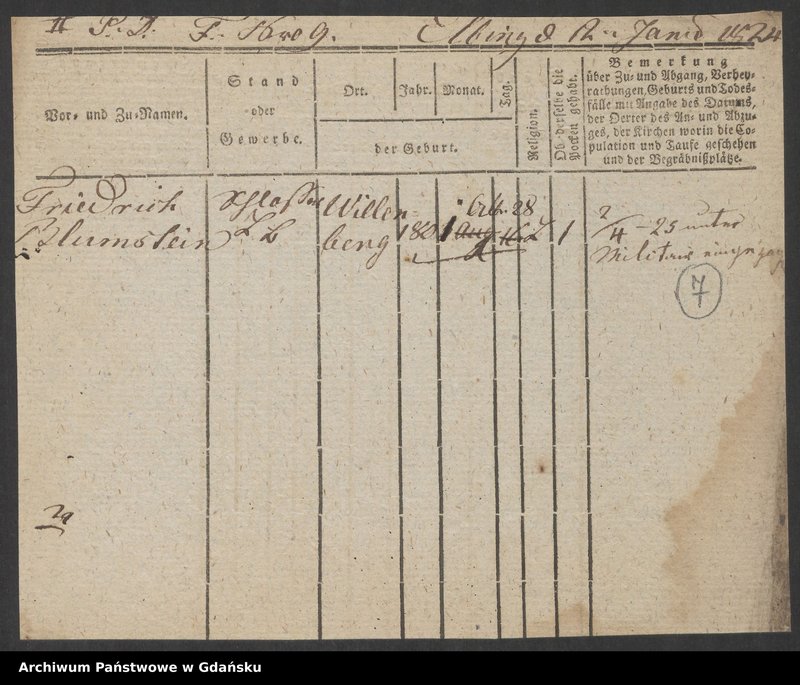 Elbing d 12 Janr 1824
Vor- und Zu-Namen.
Stand
oder
Gewerbe.
Ort.
Jahr.
Monat.
Tag.
der Geburt.
Religion.
Ob derselbe die
Pocken gehabt.
Bemerkung
über Zu- und Abgang, Verhey-
rathungen, Geburts und Todes-
fälle mit Angabe des Datums,
der Oerter des An- und Abzu-
ges, der Kirchen worin die Co-
pulation und Taufe geschehen
und der Begräbnißplätze.
Friedrich
Blumstein
Willen-
berg
1801
28
L
1
2/4 - 25 unter
Militair eingegan
7
Archiwum Państwowe w Gdańsku